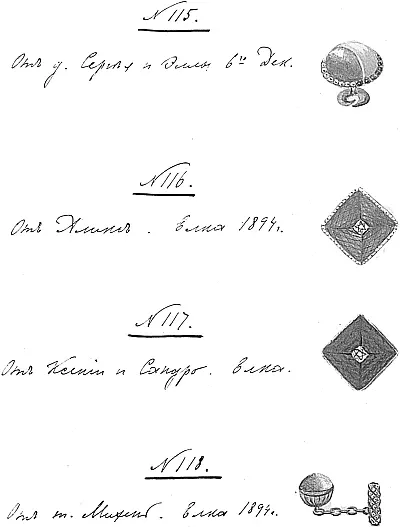 N 115.
Отъ д. Сергѣя и Эллы 6го Дек.
N 116.
Отъ Аликсъ. Елка 1894г.
N 117.
Отъ Ксеніи и Сандро. Елка.
N 118.
Отъ т. Михенъ. Елка 1894г.